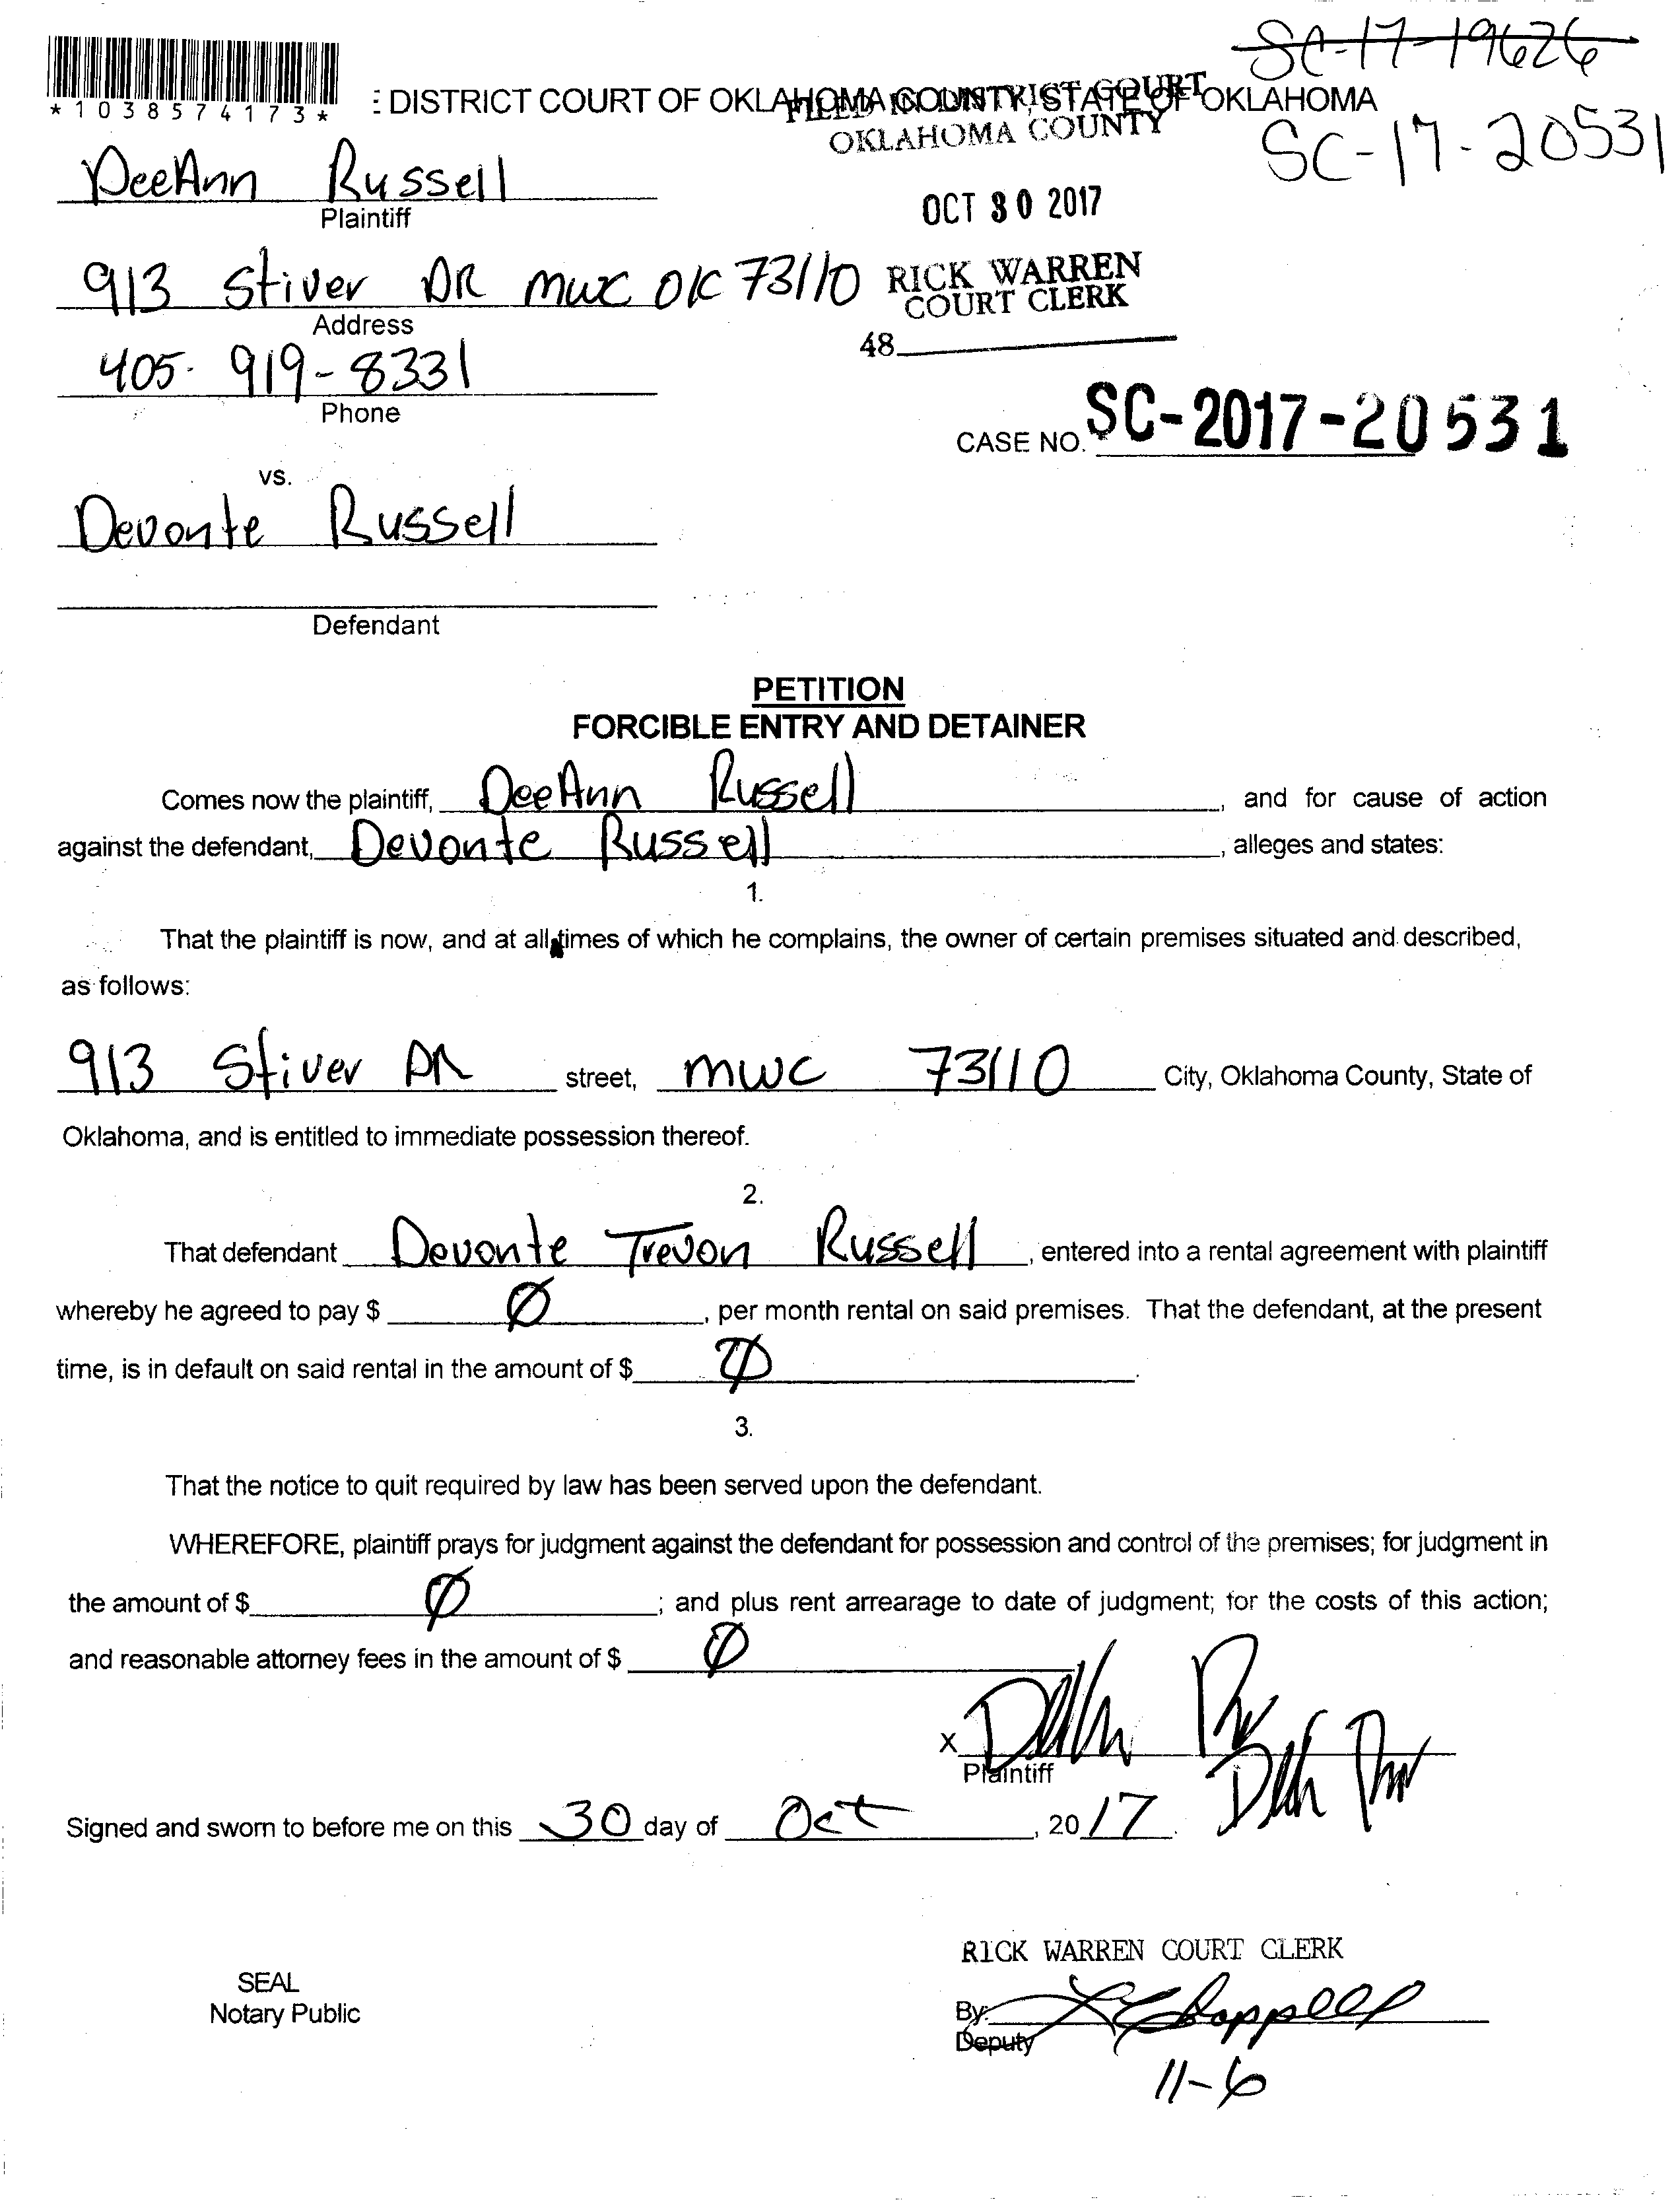 SC-17-19626
*1038574173*
E DISTRICT COURT OF OKLAHOMA COUNTY, STATE OF OKLAHOMA
FILED IN DISTRICT COURT
OKLAHOMA COUNTY
SC-17-20531
DeeAnn Russell
Plaintiff
OCT 30 2017
913 Stiver DR mwc OK 73110
Address
RICK WARREN
COURT CLERK
48
405-919-8331
Phone
CASE NO. SC-2017-20531
vs.
Devonte Russell
Defendant
PETITION
FORCIBLE ENTRY AND DETAINER
Comes now the plaintiff, DeeAnn Russell, and for cause of action
against the defendant, Devonte Russell, alleges and states:
1.
That the plaintiff is now, and at all times of which he complains, the owner of certain premises situated and described,
as follows:
913 Stiver DR street, mwc 73110 City, Oklahoma County, State of
Oklahoma, and is entitled to immediate possession thereof.
2.
That defendant Devonte Trevon Russell, entered into a rental agreement with plaintiff
whereby he agreed to pay $ Ø, per month rental on said premises. That the defendant, at the present
time, is in default on said rental in the amount of $ Ø.
3.
That the notice to quit required by law has been served upon the defendant.
WHEREFORE, plaintiff prays for judgment against the defendant for possession and control of the premises; for judgment in
the amount of $ Ø; and plus rent arrearage to date of judgment; for the costs of this action;
and reasonable attorney fees in the amount of $ Ø
X
Plaintiff
Signed and sworn to before me on this 30 day of Oct, 2017.
RICK WARREN COURT CLERK
SEAL
Notary Public
By:
Deputy
11-6